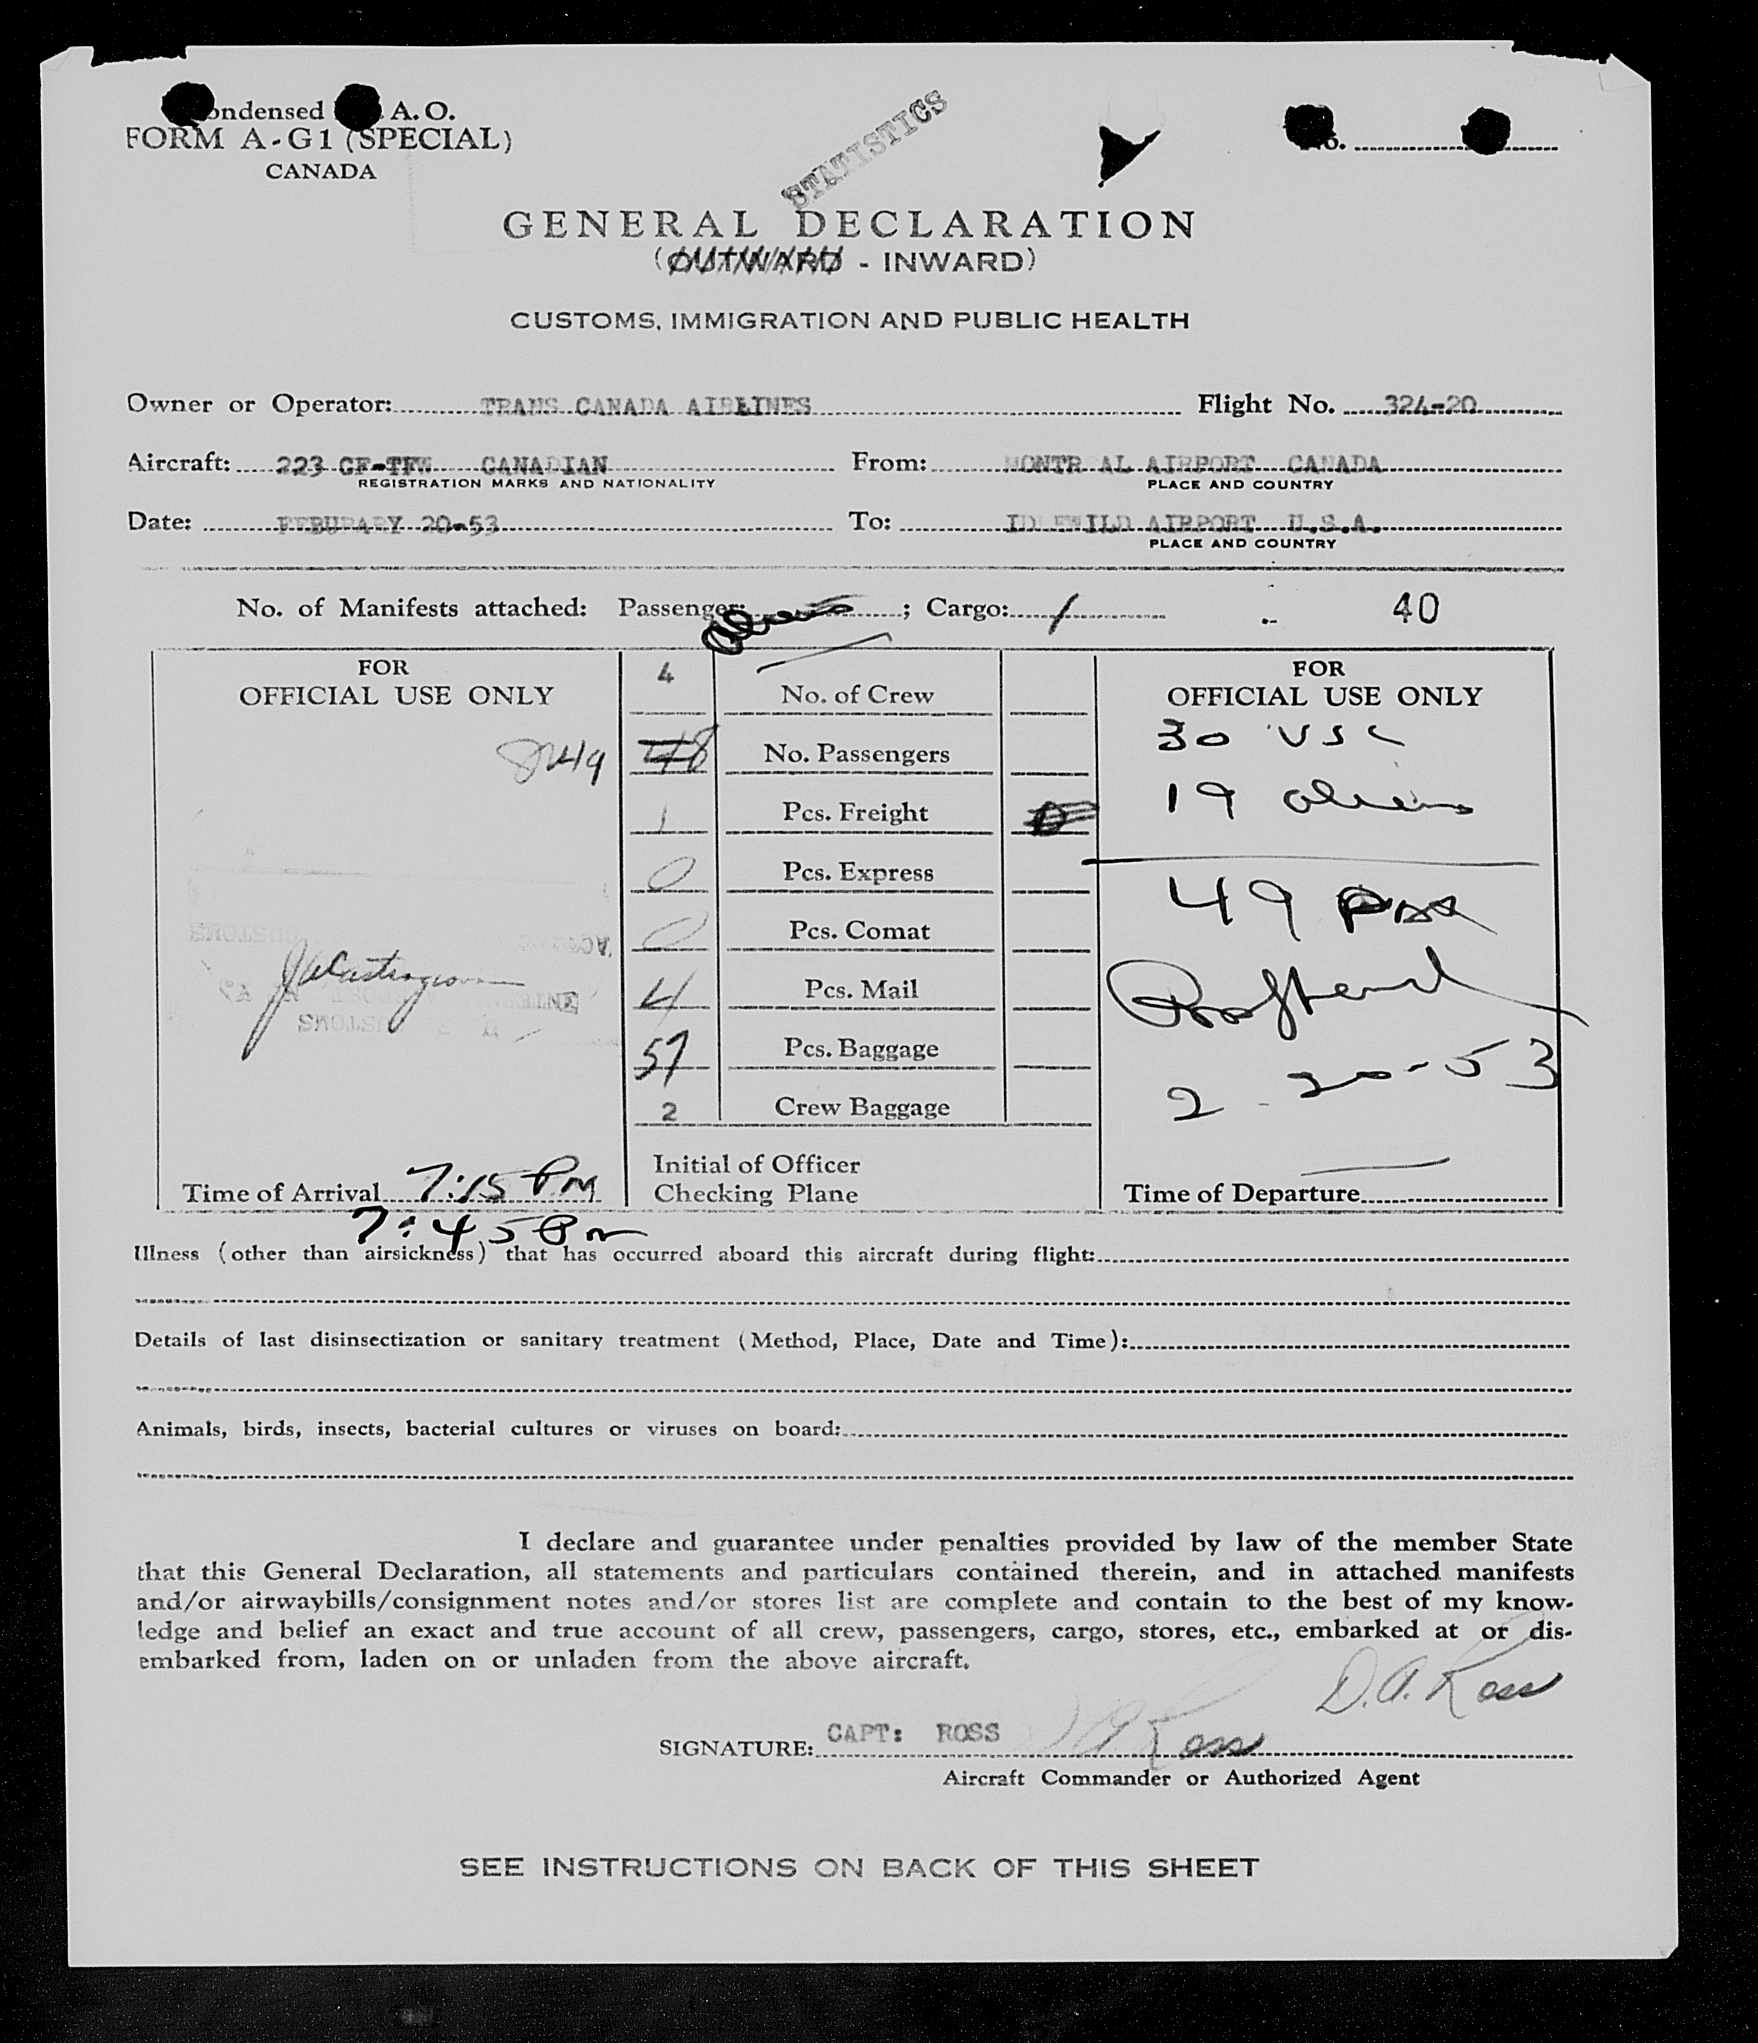 ondensed A. O.
FORM A-G1 (SPECIAL)
CANADA
STATISTICS
No.
GENERAL DECLARATION
(OUTWARD - INWARD)
CUSTOMS, IMMIGRATION AND PUBLIC HEALTH
Owner or Operator: TRANS CANADA AIRLINES Flight No. 324-20
Aircraft: 223 CF-TFW CANADIAN From: MONTR AL AIRPORT CANADA
REGISTRATION MARKS AND NATIONALITY PLACE AND COUNTRY
Date: FEBURARY 20-53 To: IDLEWILD AIRPORT U.S.A.
PLACE AND COUNTRY
No. of Manifests attached: Passenger: ; Cargo: 1 40
FOR
OFFICIAL USE ONLY
49
Time of Arrival 7:15 PM
7:45 Pm
4 No. of Crew
48 No. Passengers
1 Pcs. Freight 0
0 Pcs. Express
0 Pcs. Comat
4 Pcs. Mail
57 Pcs. Baggage
2 Crew Baggage
Initial of Officer
Checking Plane
FOR
OFFICIAL USE ONLY
30 USC
19 aliens
49 pax
2-20-53
Time of Departure
Illness (other than airsickness) that has occurred aboard this aircraft during flight:
Details of last disinsectization or sanitary treatment (Method, Place, Date and Time):
Animals, birds, insects, bacterial cultures or viruses on board:
I declare and guarantee under penalties provided by law of the member State
that this General Declaration, all statements and particulars contained therein, and in attached manifests
and/or airwaybills/consignment notes and/or stores list are complete and contain to the best of my know-
ledge and belief an exact and true account of all crew, passengers, cargo, stores, etc., embarked at or dis-
embarked from, laden on or unladen from the above aircraft.
D.A. Ross
SIGNATURE: CAPT: ROSS D A Ross
Aircraft Commander or Authorized Agent
SEE INSTRUCTIONS ON BACK OF THIS SHEET